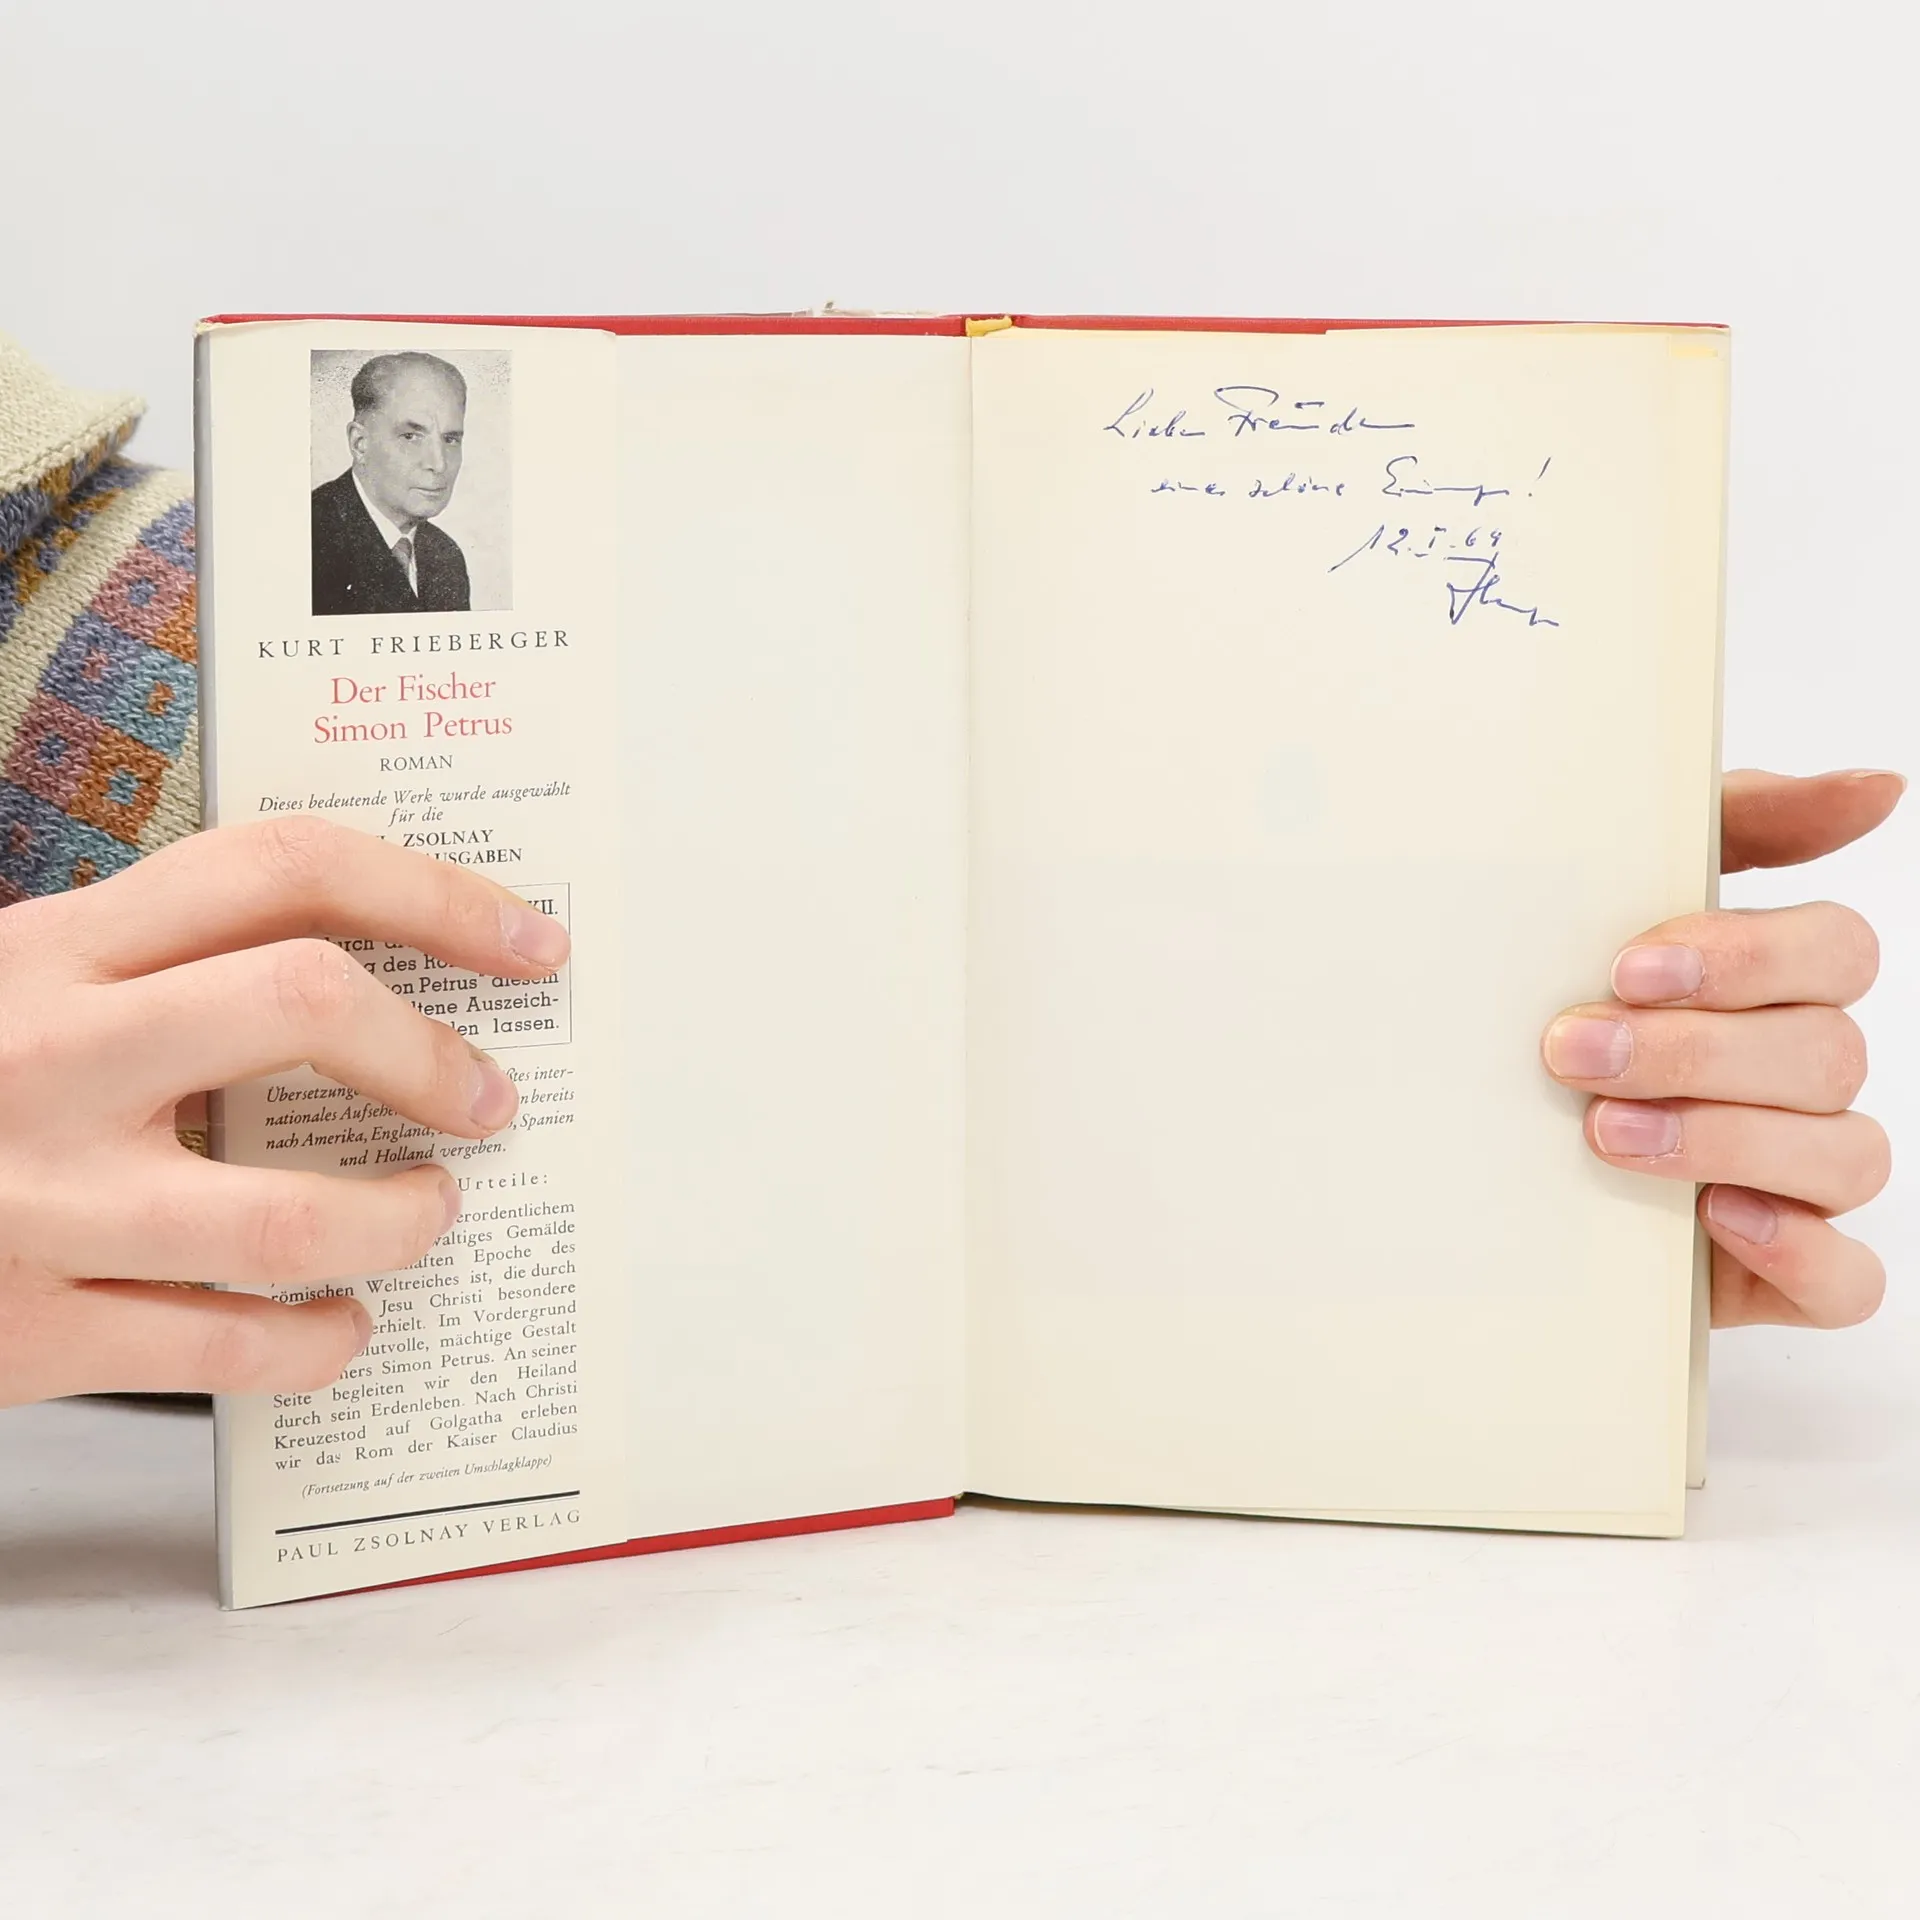 KURT FRIEBERGER
Der Fischer
Simon Petrus
ROMAN
Dieses bedeutende Werk wurde ausgewählt
für die
ZSOLNAY
XII.
des
Petrus" diesem
Auszeich-
lassen.
inter-
nationales
bereits
nach Amerika, England, Spanien
und Holland vergeben.
Urteile:
Gemälde
Epoche des
römischen Weltreiches ist, die durch
Jesu Christi besondere
erhielt. Im Vordergrund
mächtige Gestalt
Simon Petrus. An seiner
Seite begleiten wir den Heiland
durch sein Erdenleben. Nach Christi
Kreuzestod auf Golgatha erleben
wir das Rom der Kaiser Claudius
(Fortsetzung auf der zweiten Umschlagklappe)
PAUL ZSOLNAY VERLAG
Lieben Freunden
eines schöne !
12.I.64